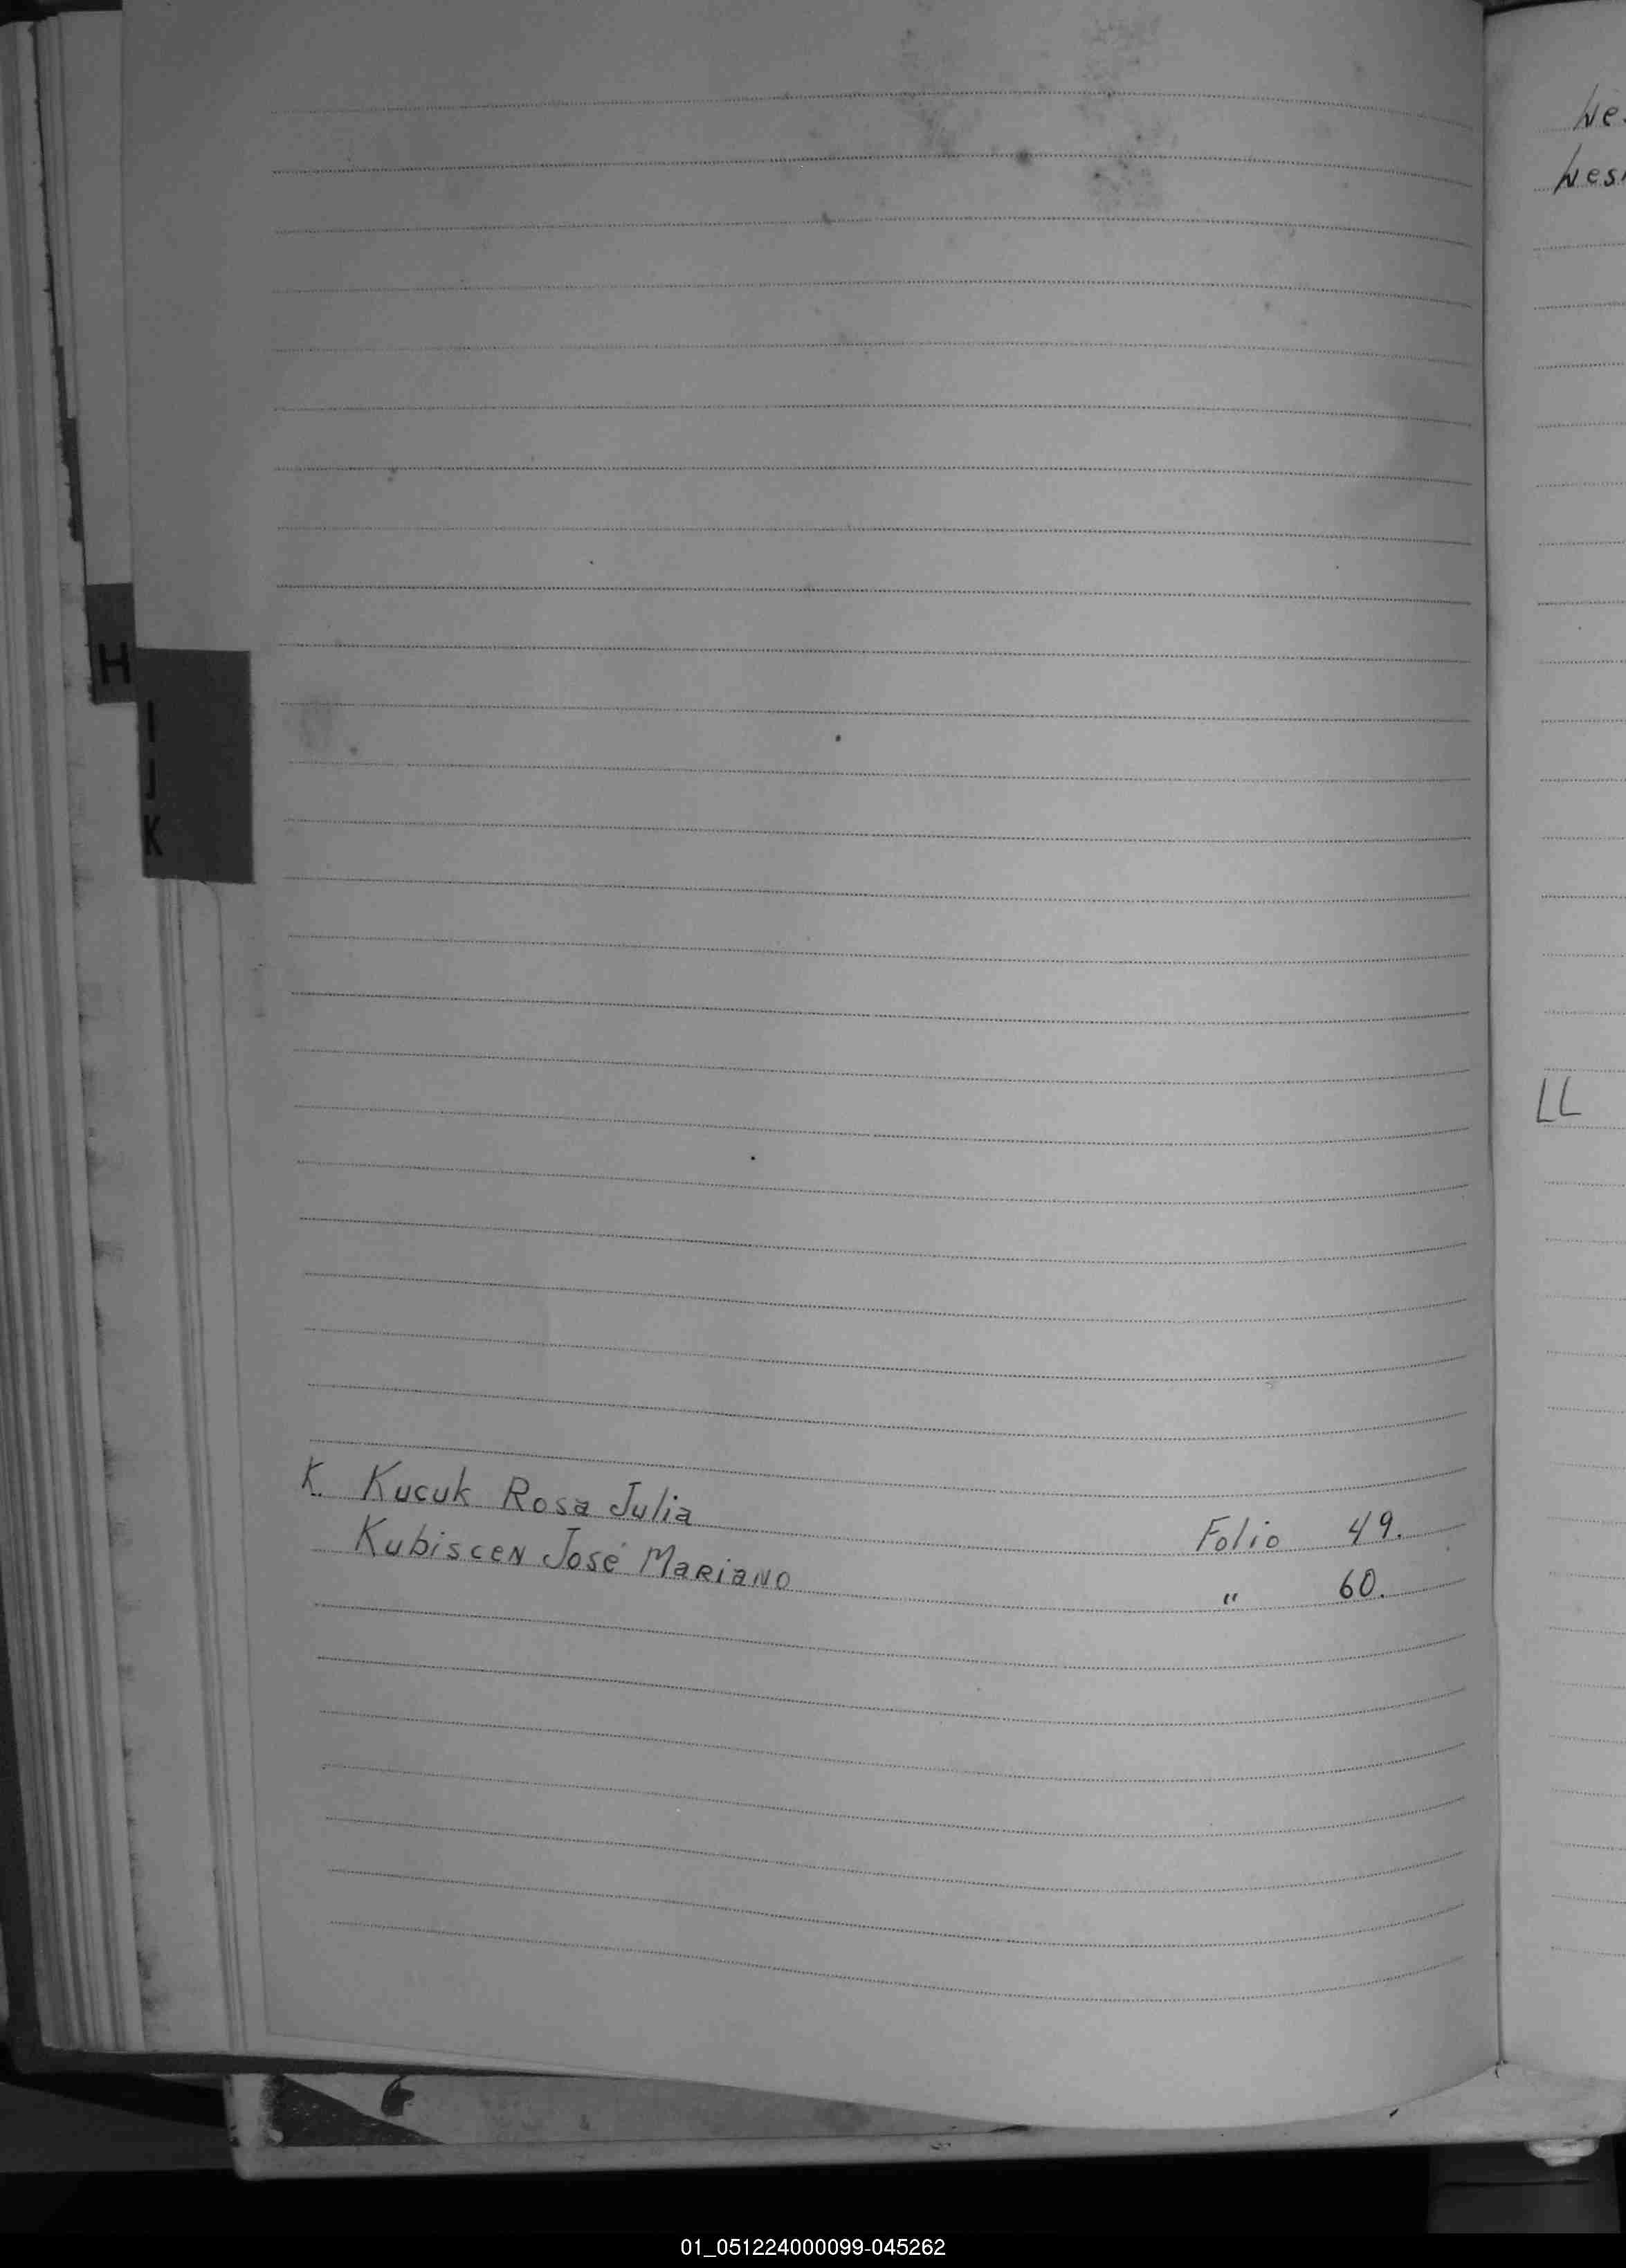 H
I
J
K
K. Kucuk Rosa Julia Folio 49.
Kubiscen José Mariano " 60.
LL
01_051224000099-045262